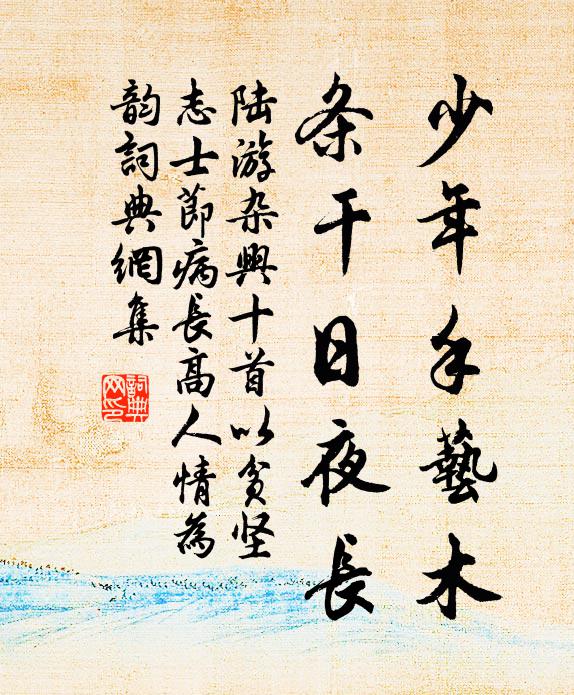 少年手藝木
条干日夜長
陆游杂興十首以貧坚
志士節病長高人情為
韵詞典網集
詞典
网印